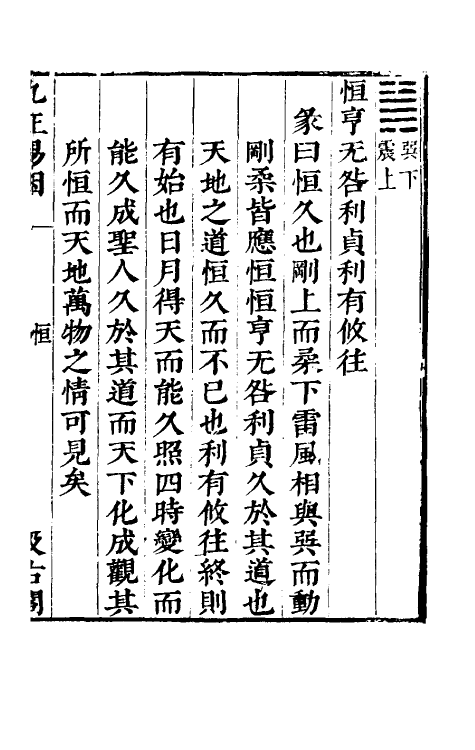 巽下
震上
恒亨无咎利貞利有攸往
彖曰恒久也剛上而柔下雷風相與巽而動
剛柔皆應恒恒亨无咎利貞久於其道也
天地之道恒久而不已也利有攸往終則
有始也日月得天而能久照四時變化而
能久成聖人久於其道而天下化成觀其
所恒而天地萬物之情可見矣
九正易因 恒 汲古閣